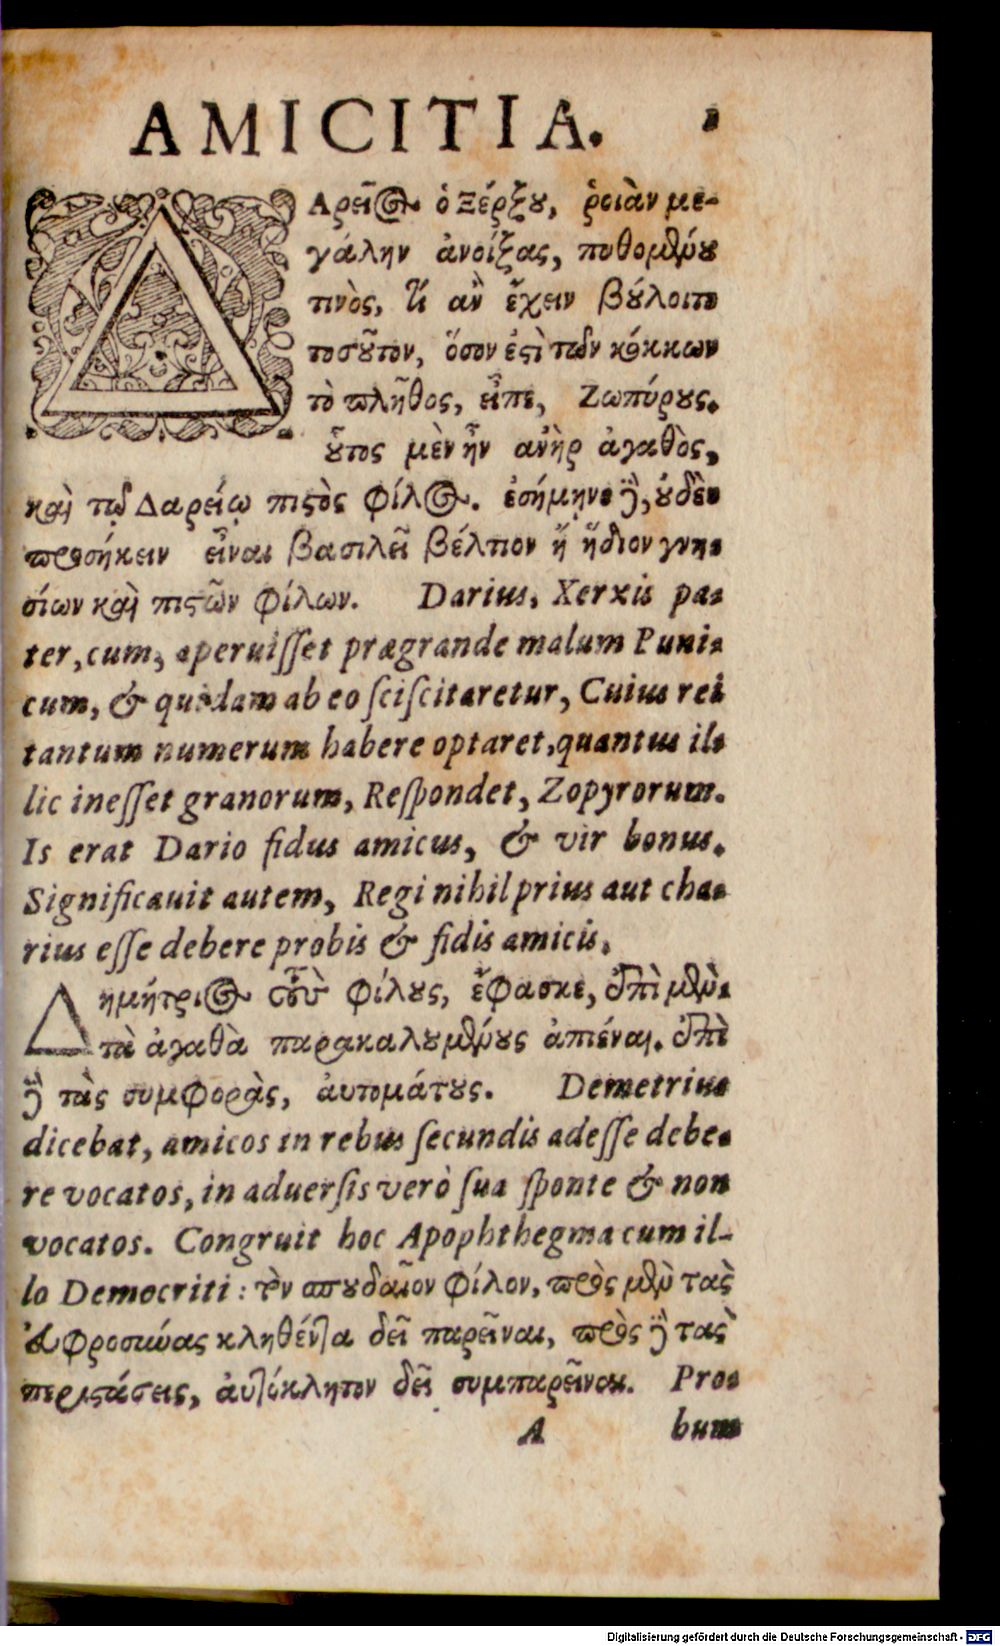 AMICITIA. 1
ΔΑρεῖος ὁ Ξέρξου, ῥοιὰν με-
γάλην ἀνοίξας, πυθομένου
τινὸς, τί ἂν ἔχειν βούλοιτο
τοσοῦτον, ὅσον ἐστὶ τῶν κόκκων
τὸ πλῆθος, εἶπε, Ζωπύρους.
οὗτος μὲν ἦν ἀνὴρ ἀγαθὸς,
καὶ τῷ Δαρείῳ πιστὸς φίλος. ἐσήμηνε δὲ, οὐδὲν
προσήκειν εἶναι βασιλεῖ βέλτιον ἢ ἥδιον γνη-
σίων καὶ πιστῶν φίλων. Darius, Xerxis pa-
ter, cum, aperuiſſet prægrande malum Puni-
cum, & quidam ab eo ſciſcitaretur, Cuius rei
tantum numerum habere optaret, quantus il-
lic ineſſet granorum, Reſpondet, Zopyrorum.
Is erat Dario fidus amicus, & vir bonus.
Significauit autem, Regi nihil prius aut cha-
rius eſſe debere probis & fidis amicis.
Δημήτριος τοὺς φίλους, ἔφασκε, ἐπὶ μὲν
τὰ ἀγαθὰ παρακαλουμένους ἀπιέναι. ἐπὶ
δὲ τὰς συμφορὰς, αὐτομάτους. Demetrius
dicebat, amicos in rebus ſecundis adeſſe debe-
re vocatos, in aduerſis verò ſua ſponte & non
vocatos. Congruit hoc Apophthegma cum il-
lo Democriti: τὸν σπουδαῖον φίλον, πρὸς μὲν τὰς
εὐφροσύνας κληθέντα δεῖ παρεῖναι, πρὸς δὲ τὰς
περιστάσεις, αὐτόκλητον δεῖ συμπαρεῖναι. Pro-
A bum
Digitalisierung gefördert durch die Deutsche Forschungsgemeinschaft - DFG